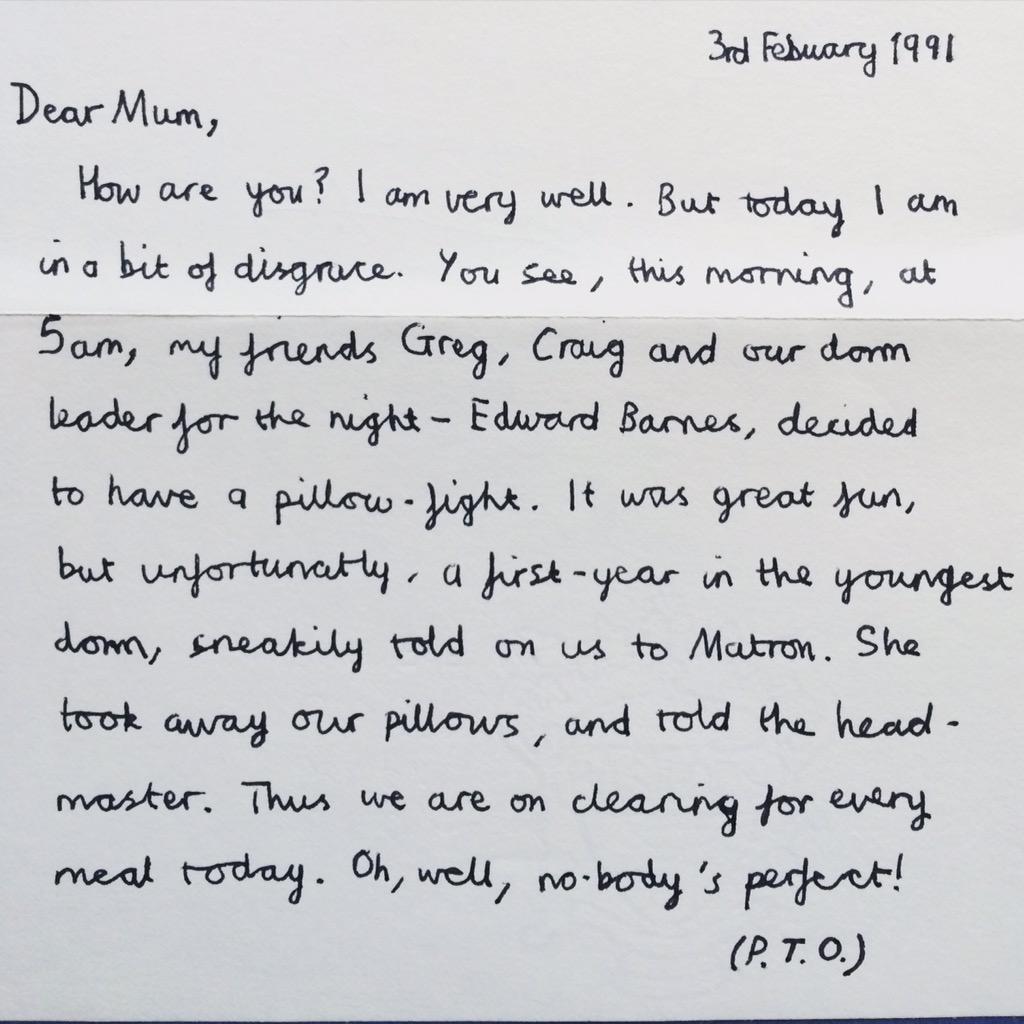 3rd Febuary 1991
Dear Mum,
How are you? I am very well. But today I am
in a bit of disgrace. You see, this morning, at
5am, my friends Greg, Craig and our dorm
leader for the night - Edward Barnes, decided
to have a pillow-fight. It was great fun,
but unfortunatly, a first-year in the youngest
dorm, sneakily told on us to Matron. She
took away our pillows, and told the head-
master. Thus we are on clearing for every
meal today. Oh, well, no-body's perfect!
(P.T.O.)